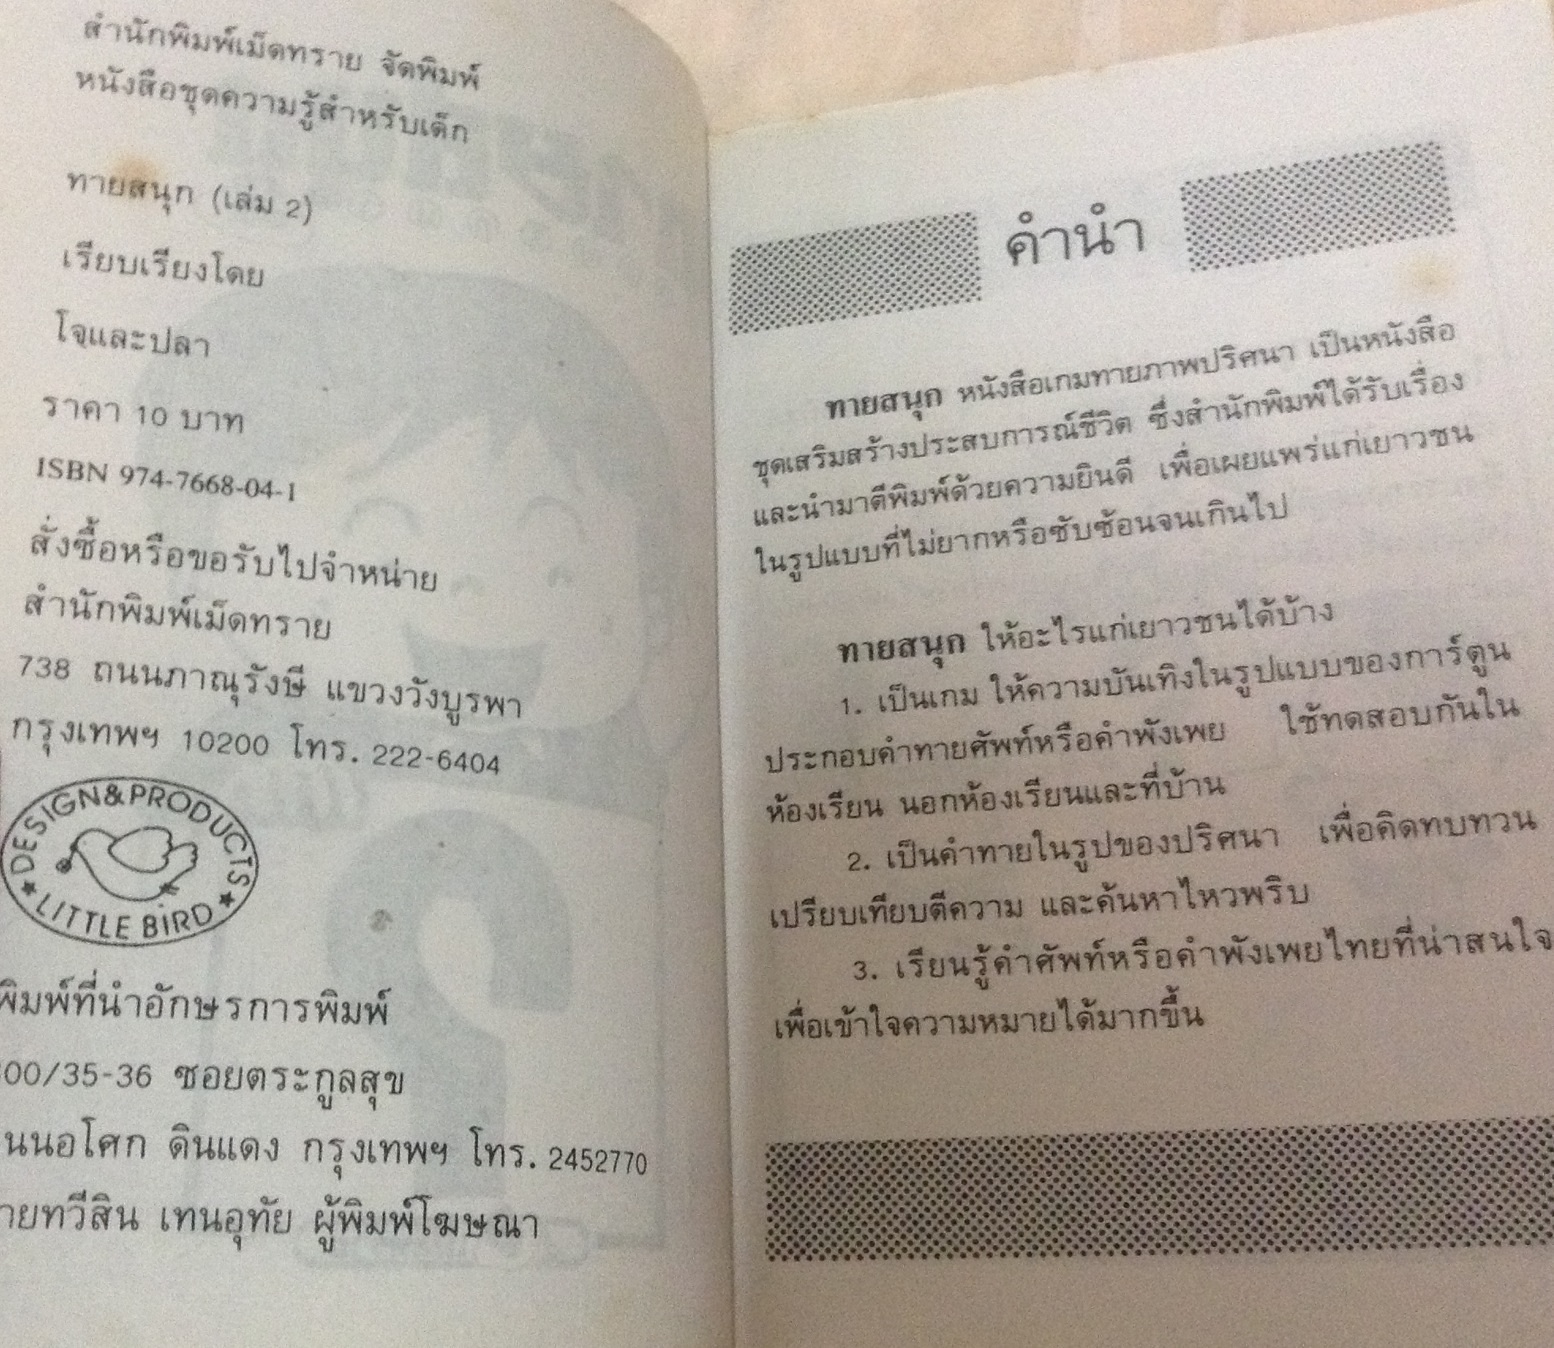 สำนักพิมพ์เม็ดทราย จัดพิมพ์
หนังสือชุดความรู้สำหรับเด็ก
ทายสนุก (เล่ม 2)
เรียบเรียงโดย
โจและปลา
ราคา 10 บาท
ISBN 974-7668-04-1
สั่งซื้อหรือขอรับไปจำหน่าย
สำนักพิมพ์เม็ดทราย
738 ถนนภาณุรังษี แขวงวังบูรพา
กรุงเทพฯ 10200 โทร. 222-6404
DESIGN&PRODUCTS
LITTLE BIRD
พิมพ์ที่นำอักษรการพิมพ์
00/35-36 ซอยตระกูลสุข
นนอโศก ดินแดง กรุงเทพฯ โทร. 2452770
ายทวีสิน เทนอุทัย ผู้พิมพ์โฆษณา
คำนำ
ทายสนุก หนังสือเกมทายภาพปริศนา เป็นหนังสือ
ชุดเสริมสร้างประสบการณ์ชีวิต ซึ่งสำนักพิมพ์ได้รับเรื่อง
และนำมาตีพิมพ์ด้วยความยินดี เพื่อเผยแพร่แก่เยาวชน
ในรูปแบบที่ไม่ยากหรือซับซ้อนจนเกินไป
ทายสนุก ให้อะไรแก่เยาวชนได้บ้าง
1. เป็นเกม ให้ความบันเทิงในรูปแบบของการ์ตูน
ประกอบคำทายศัพท์หรือคำพังเพย ใช้ทดสอบกันใน
ห้องเรียน นอกห้องเรียนและที่บ้าน
2. เป็นคำทายในรูปของปริศนา เพื่อคิดทบทวน
เปรียบเทียบตีความ และค้นหาไหวพริบ
3. เรียนรู้คำศัพท์หรือคำพังเพยไทยที่น่าสนใจ
เพื่อเข้าใจความหมายได้มากขึ้น